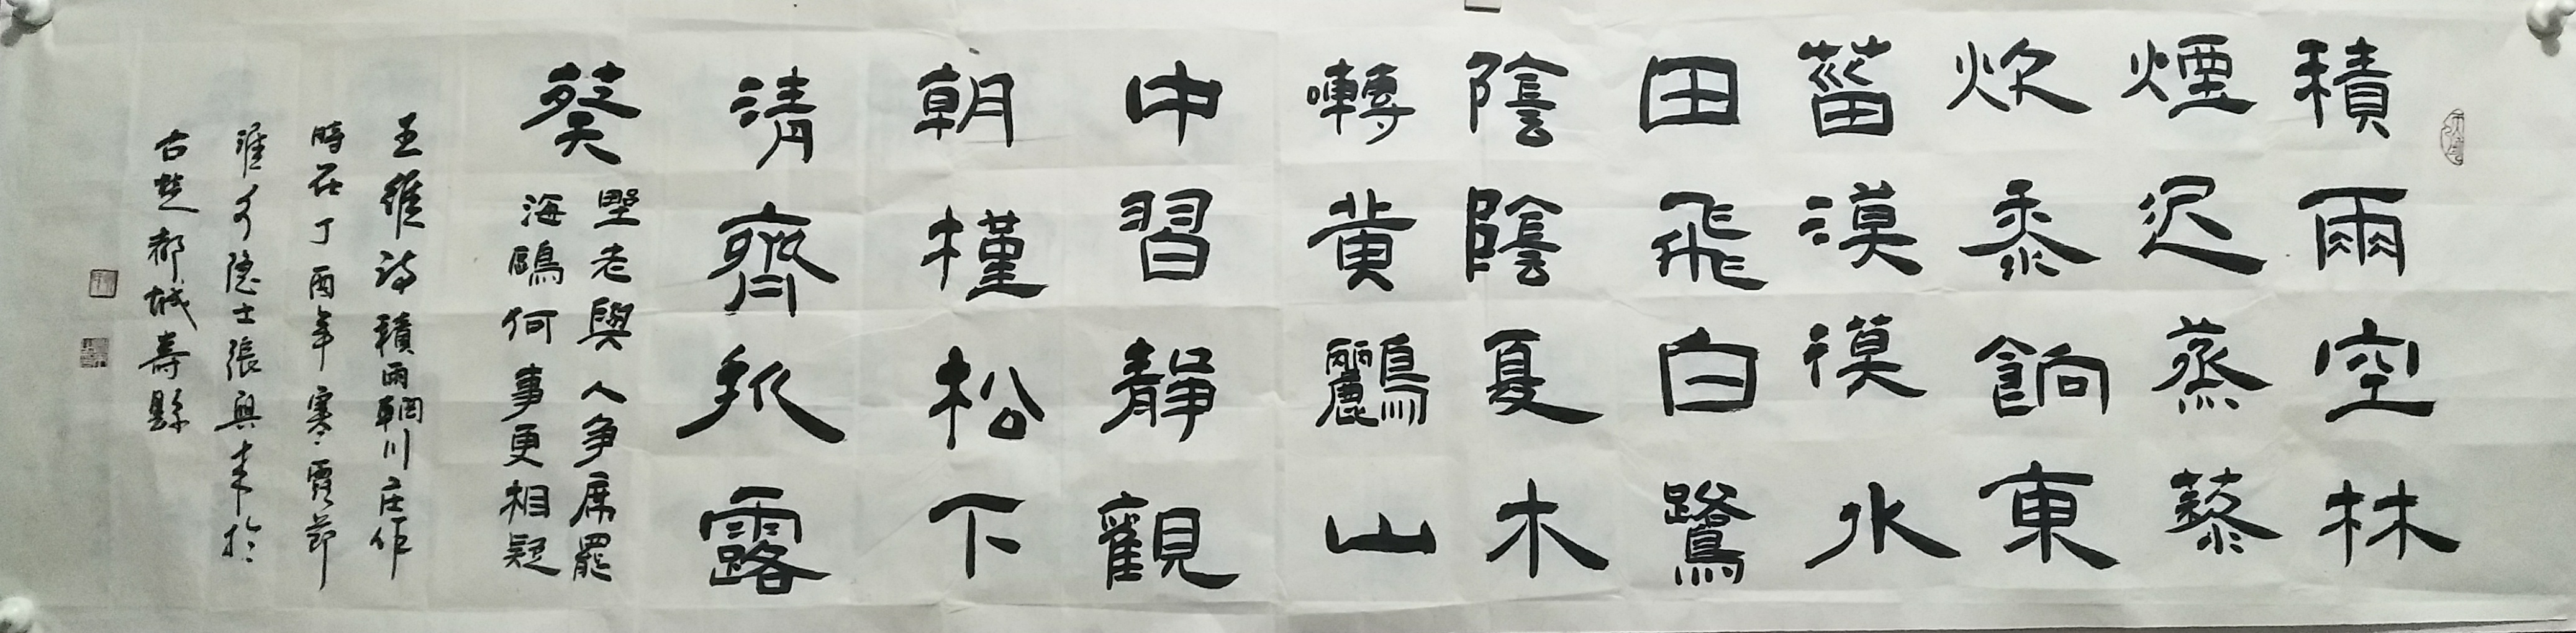 積雨空林
煙迟蒸藜
炊黍餉東
菑漠漠水
田飛白鷺
陰陰夏木
囀黄鸝山
中習靜觀
朝槿松下
清齊折露
葵
野老與人争席罷
海鷗何事更相疑
王維詩積雨輞川庄作
時在丁酉年寒露節
淮隐士張興来於
古楚都城壽縣